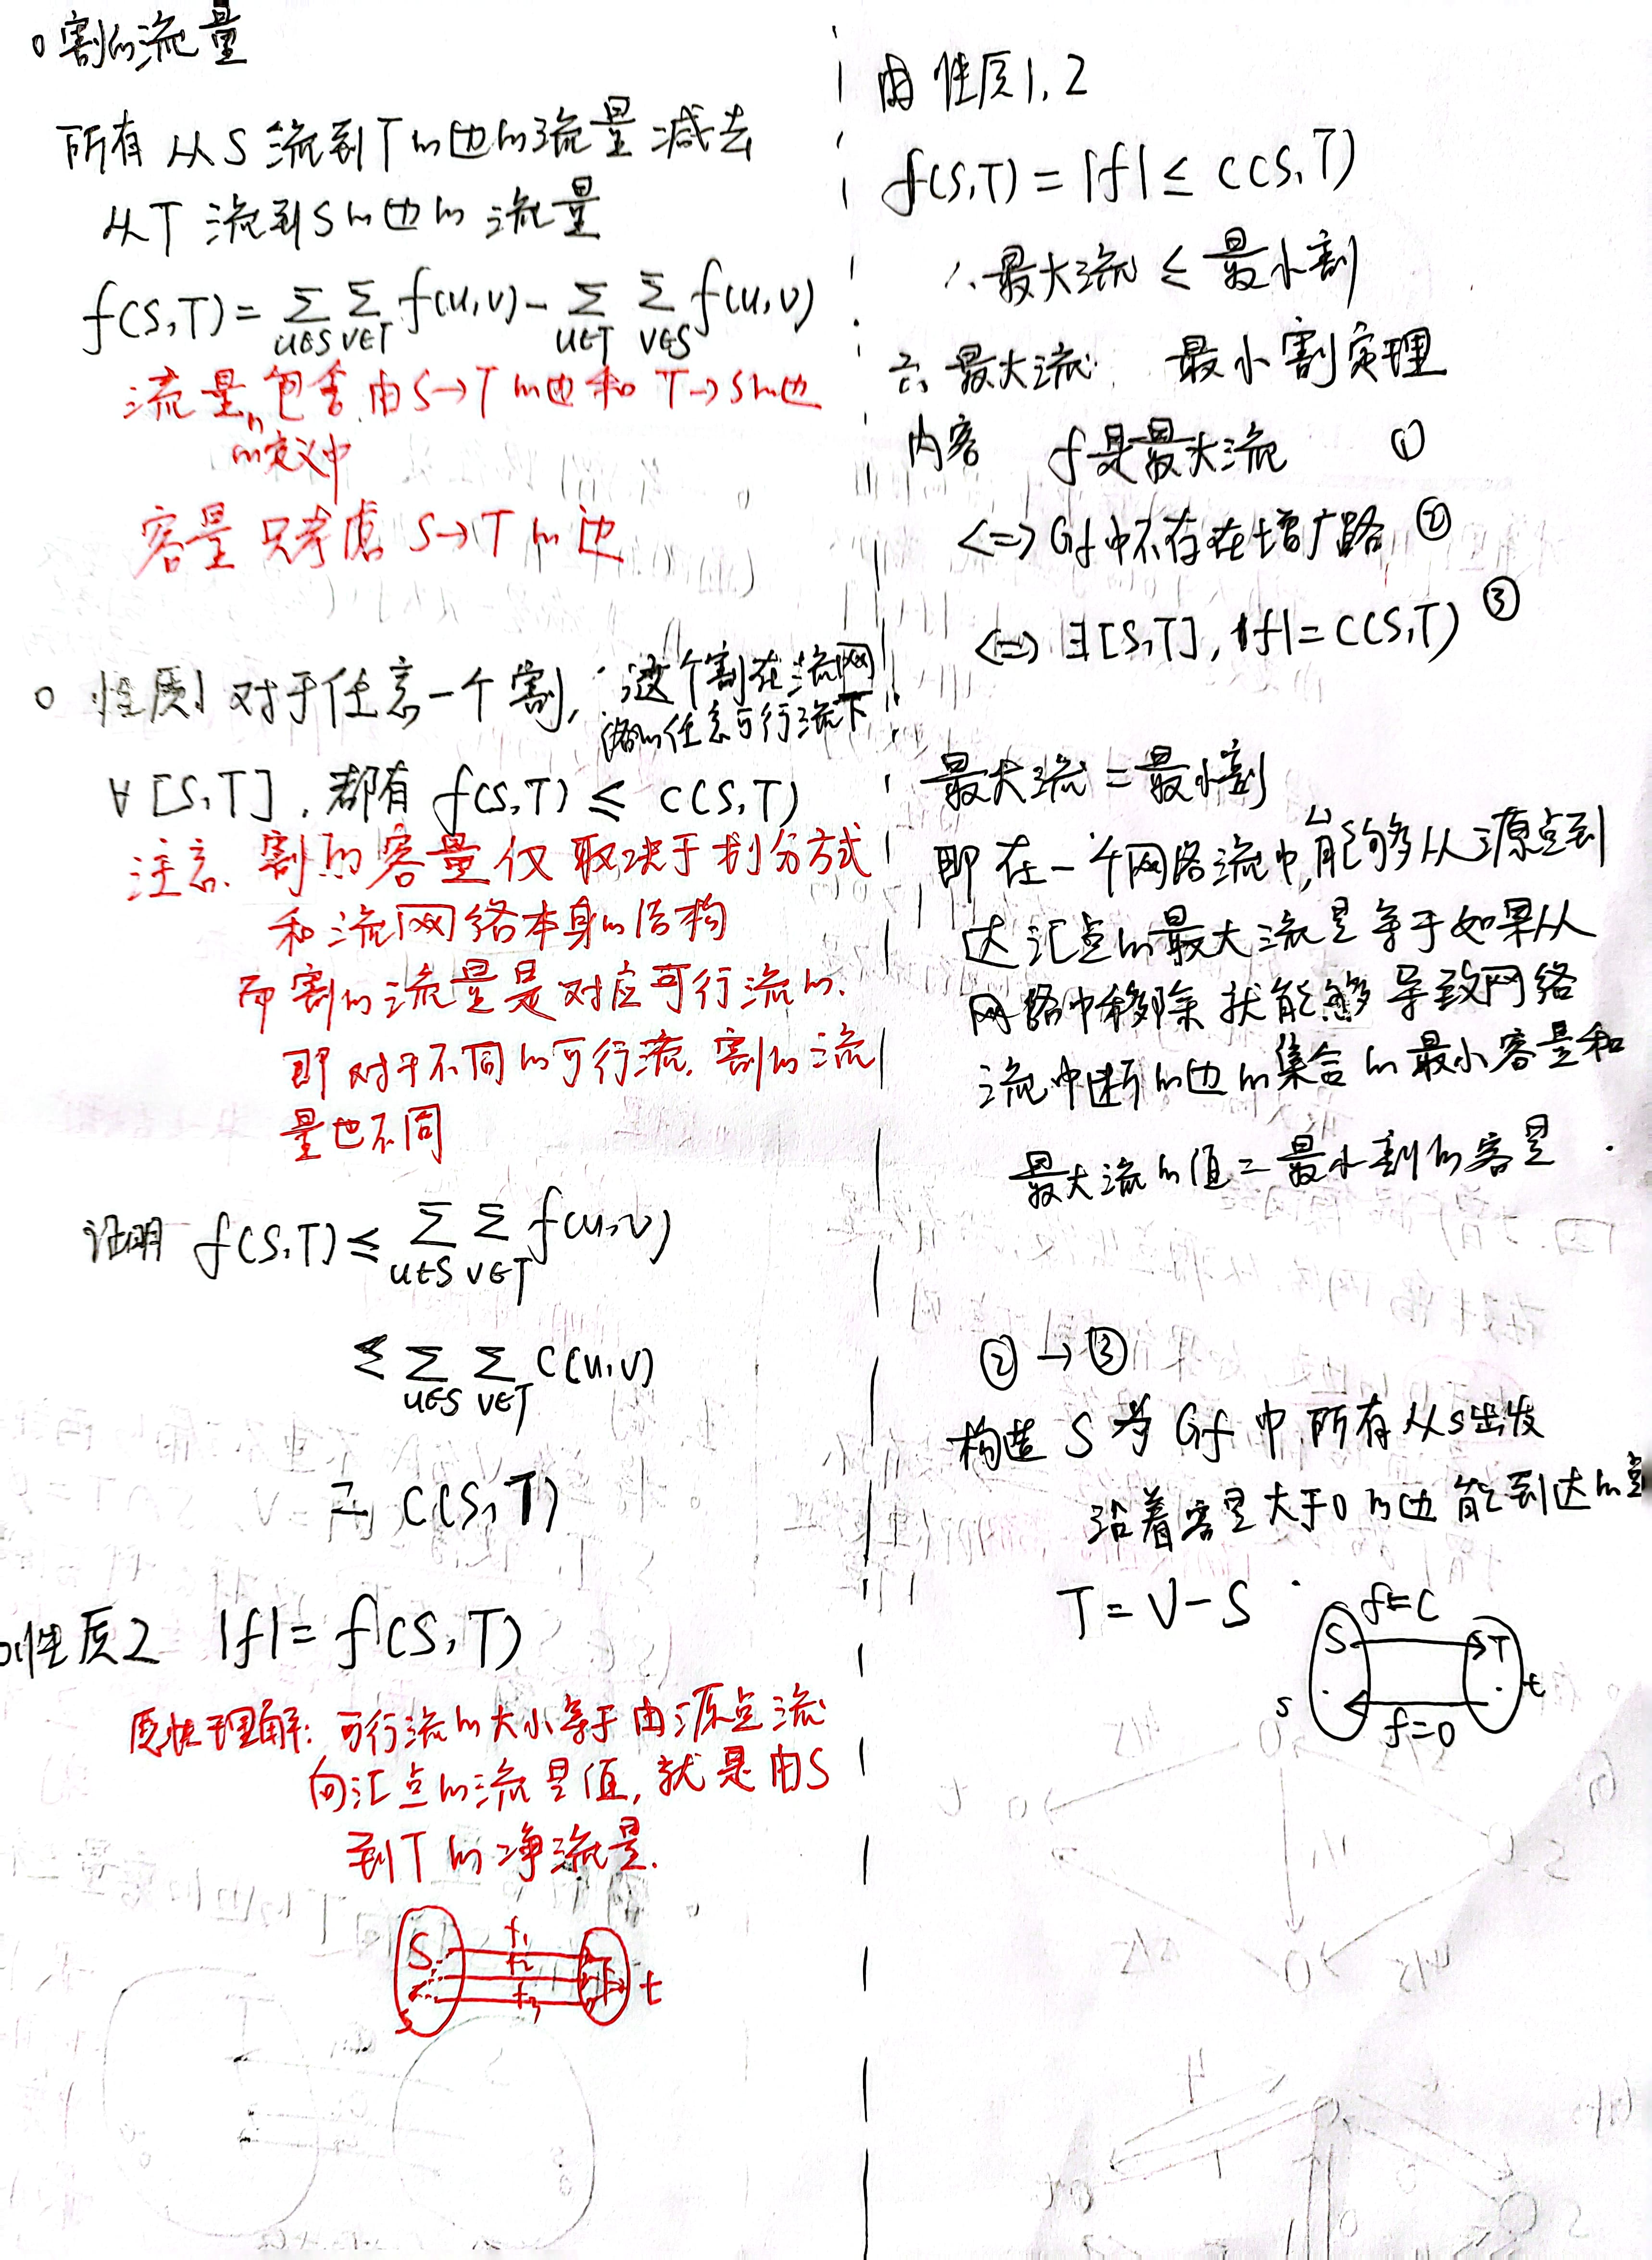 割的流量
所有从S流到T的边的流量减去
从T流到S的边的流量
f(S,T)=∑u∈S∑v∈T f(u,v)-∑u∈T∑v∈S f(u,v)
流量包含由S→T的边和T→S的边
的定义中
容量只考虑S→T的边
性质1 对于任意一个割,这个割在流网
络的任意可行流下
∀[S,T],都有 f(S,T)≤c(S,T)
注意.割的容量仅取决于划分方式
和流网络本身的结构
而割的流量是对应可行流的.
即对于不同的可行流,割的流
量也不同
证明 f(S,T)≤∑u∈S∑v∈T f(u,v)
≤∑u∈S∑v∈T c(u,v)
= c(S,T)
性质2 |f|=f(S,T)
感性理解:可行流的大小等于由源点流
向汇点的流量值,就是由S
到T的净流量.
S f1 f2 f3 T t
s
由性质1,2
f(S,T)=|f|≤c(S,T)
∴最大流≤最小割
六、最大流 最小割定理
内容 f是最大流 ①
<=>Gf中不存在增广路 ②
<=>∃[S,T],|f|=c(S,T) ③
最大流=最小割
即在一个网络流中,能够从源点到
达汇点的最大流量等于如果从
网络中移除就能够导致网络
流中断的边的集合的最小容量和
最大流的值=最小割的容量.
②→③
构造S为Gf中,所有从s出发
沿着容量大于0的边能到达的点
T=V-S
f=c
S T
s t
f=0